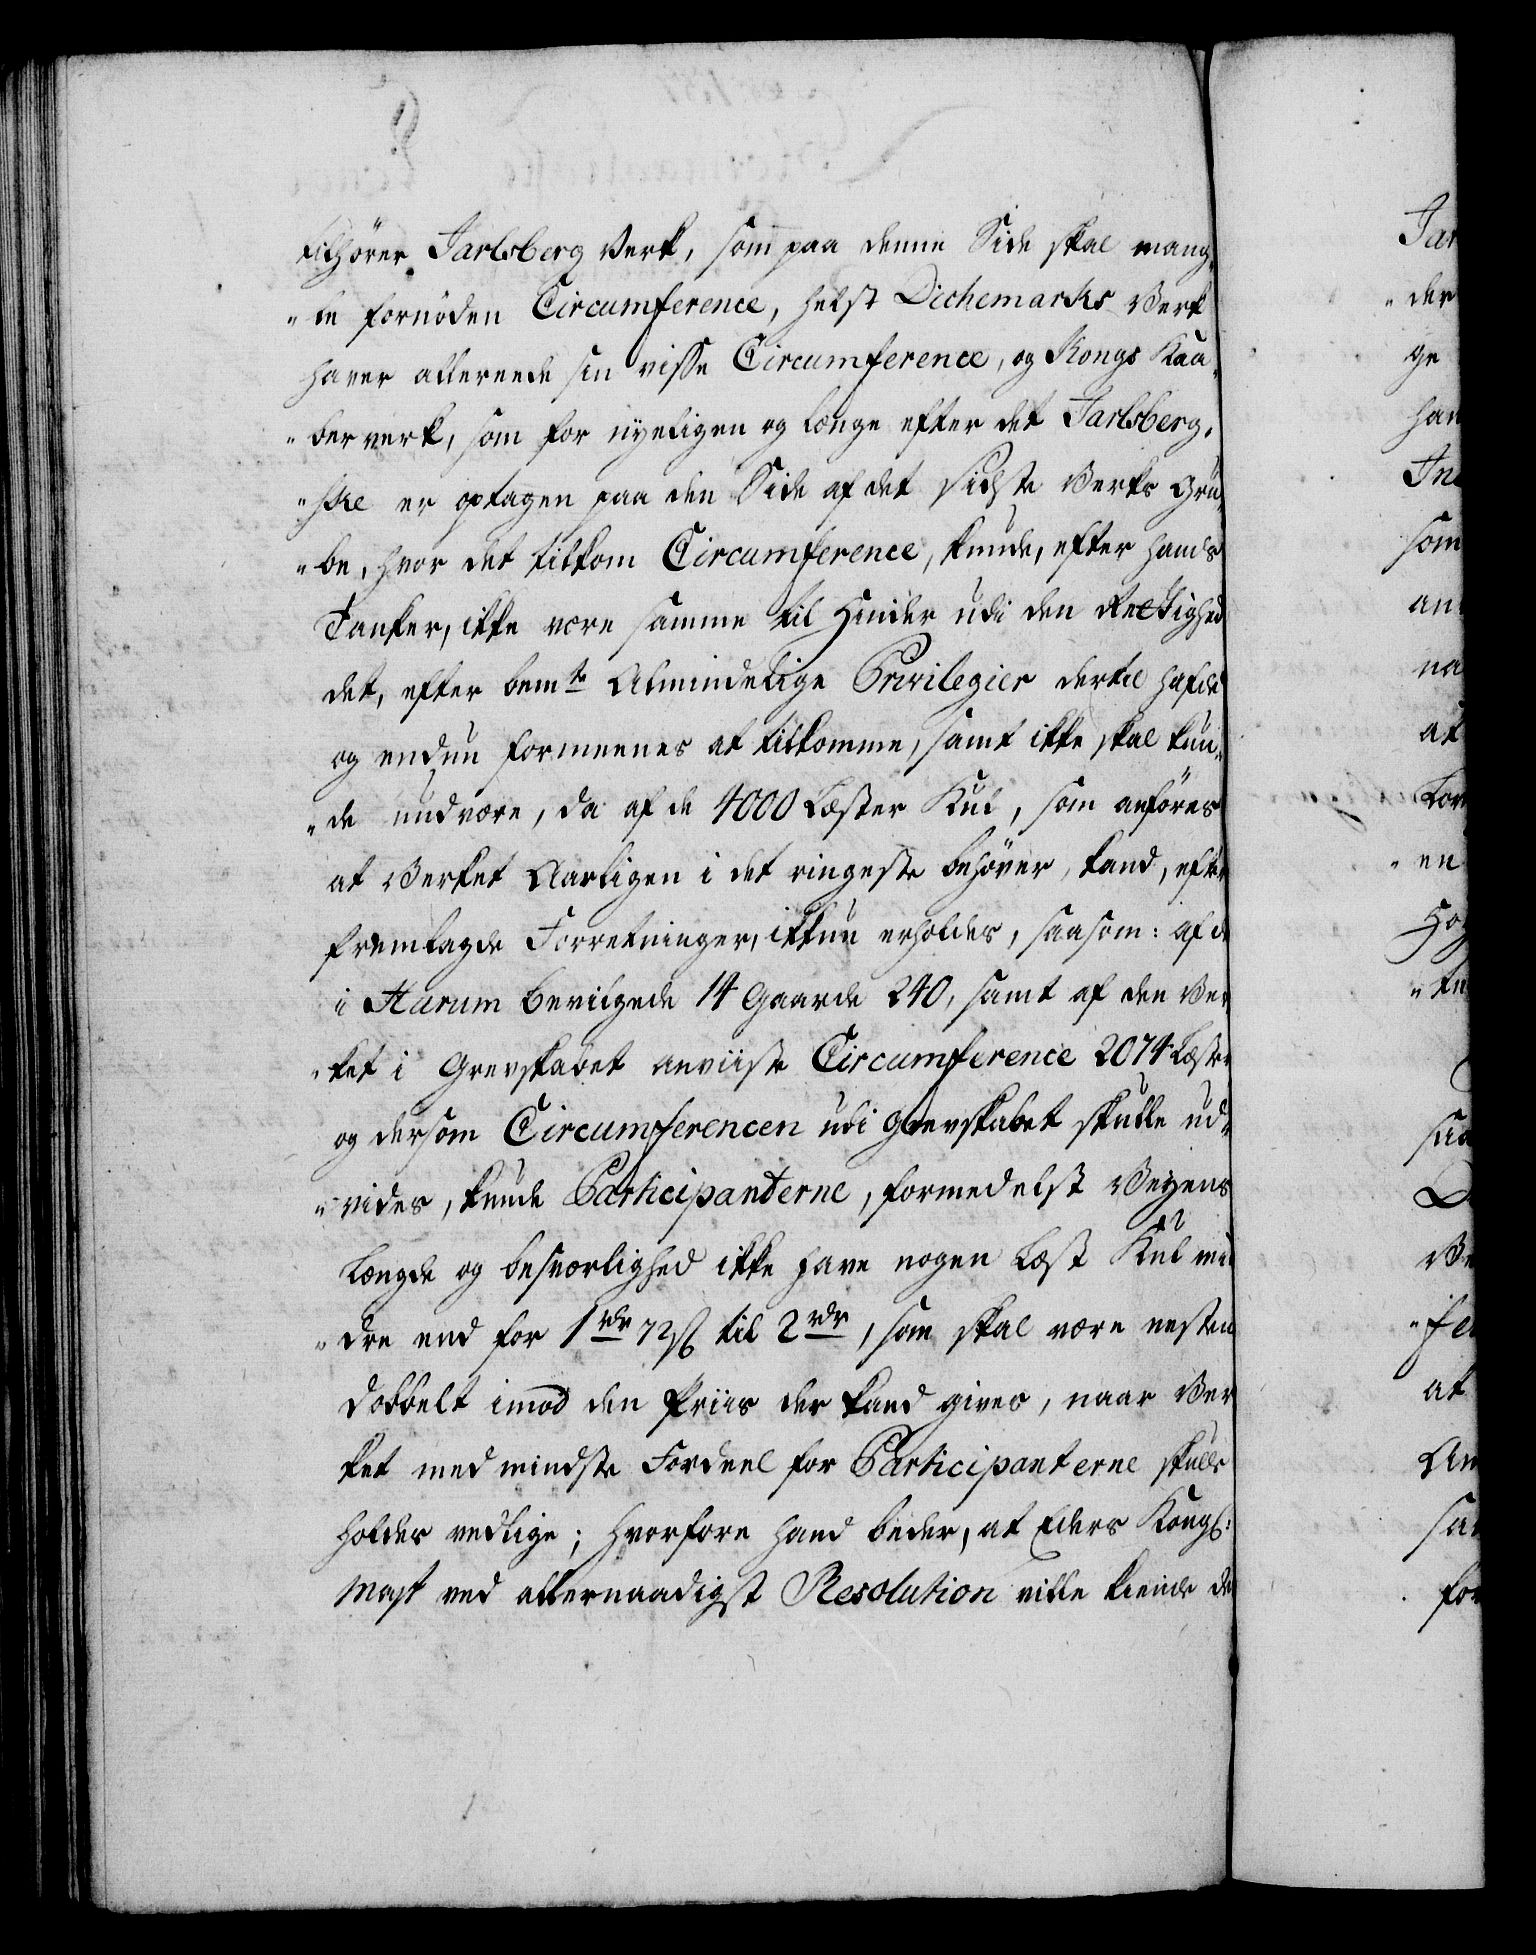 tilhörer Jarlsberg Verk, som paa denne Side skal mang-
"le fornöden Circumference, helst Dichemarks Verk
haver allereede sin visse Circumference, og Kongs Kaa-
"berverk, som for nyeligen og længe efter det Jarlsberg-
"ske er optagen paa den Side af det sidste Verks Gru-
"be, hvor det tilkom Circumference, kunde, efter hands
Tanker, ikke være samme til Hinder udi den Rettighed
det, efter bemte Almindelige Privilegier dertil hafde
og endnu formeenes at tilkomme, samt ikke skal kun-
"de undvære, da af de 4000 Læster Kul, som anföres
at Verket Aarligen i det ringeste behöver, kand, efter
fremlagde Forretninger, ikkun erholdes, saasom: af de
i Hurum bevilgede 14 Gaarde 240, samt af den Ver
"ket i Grevskabet anviiste Circumference 2074 Læster
og dersom Circumferencen udi Grevskabet skulle ud-
"vides, kunde Participanterne, formedelst Veyens
Længde og besværlighed ikke have nogen Læst Kul min
"dre end for 1 rdr 72 ß til 2 rdr, som skal være nesten
dobbelt imod den Priis der kand gives, naar Ver
ket med mindste Fordeel for Participanterne skulle
holdes vedlige; hvorfore hand beder, at Eders Kongl:
Mayt ved allernaadigst Resolution ville kiende de
Jar
"der
ge
han
In
som
an
na
at
for
"en
Hog
"tu
saa
D
Ve
"fer
at
An
saa
for